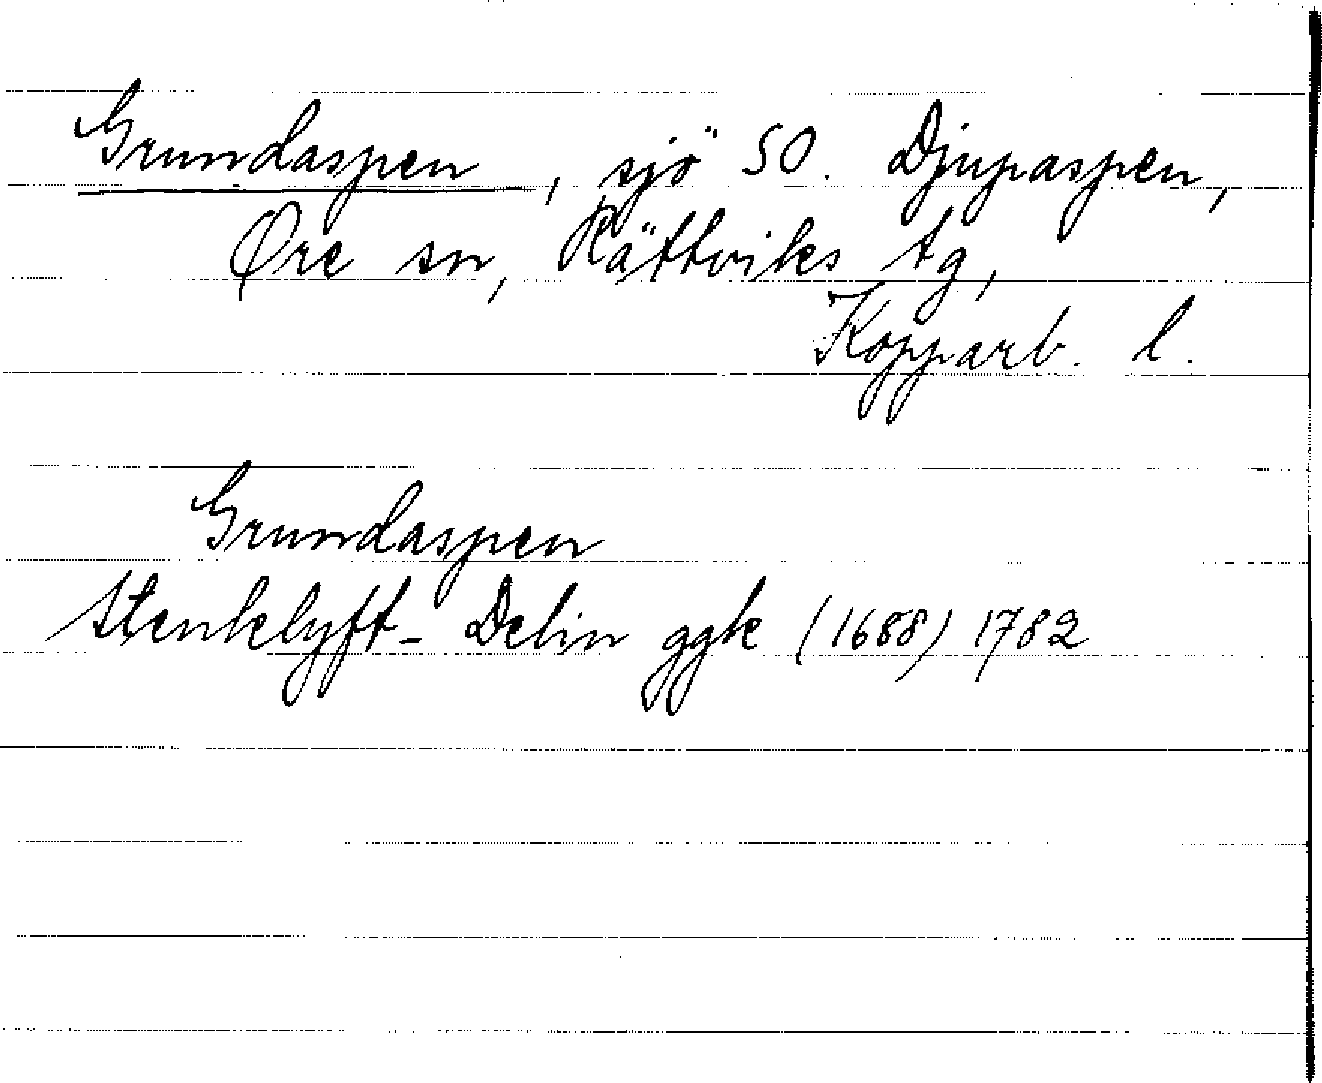 Grundaspen, sjö SO. Djupaspen,
Øre sn, Rättviks tg,
Kopparb. l.
Grundaspen
Stenklyft- Delin ggk (1688) 1782